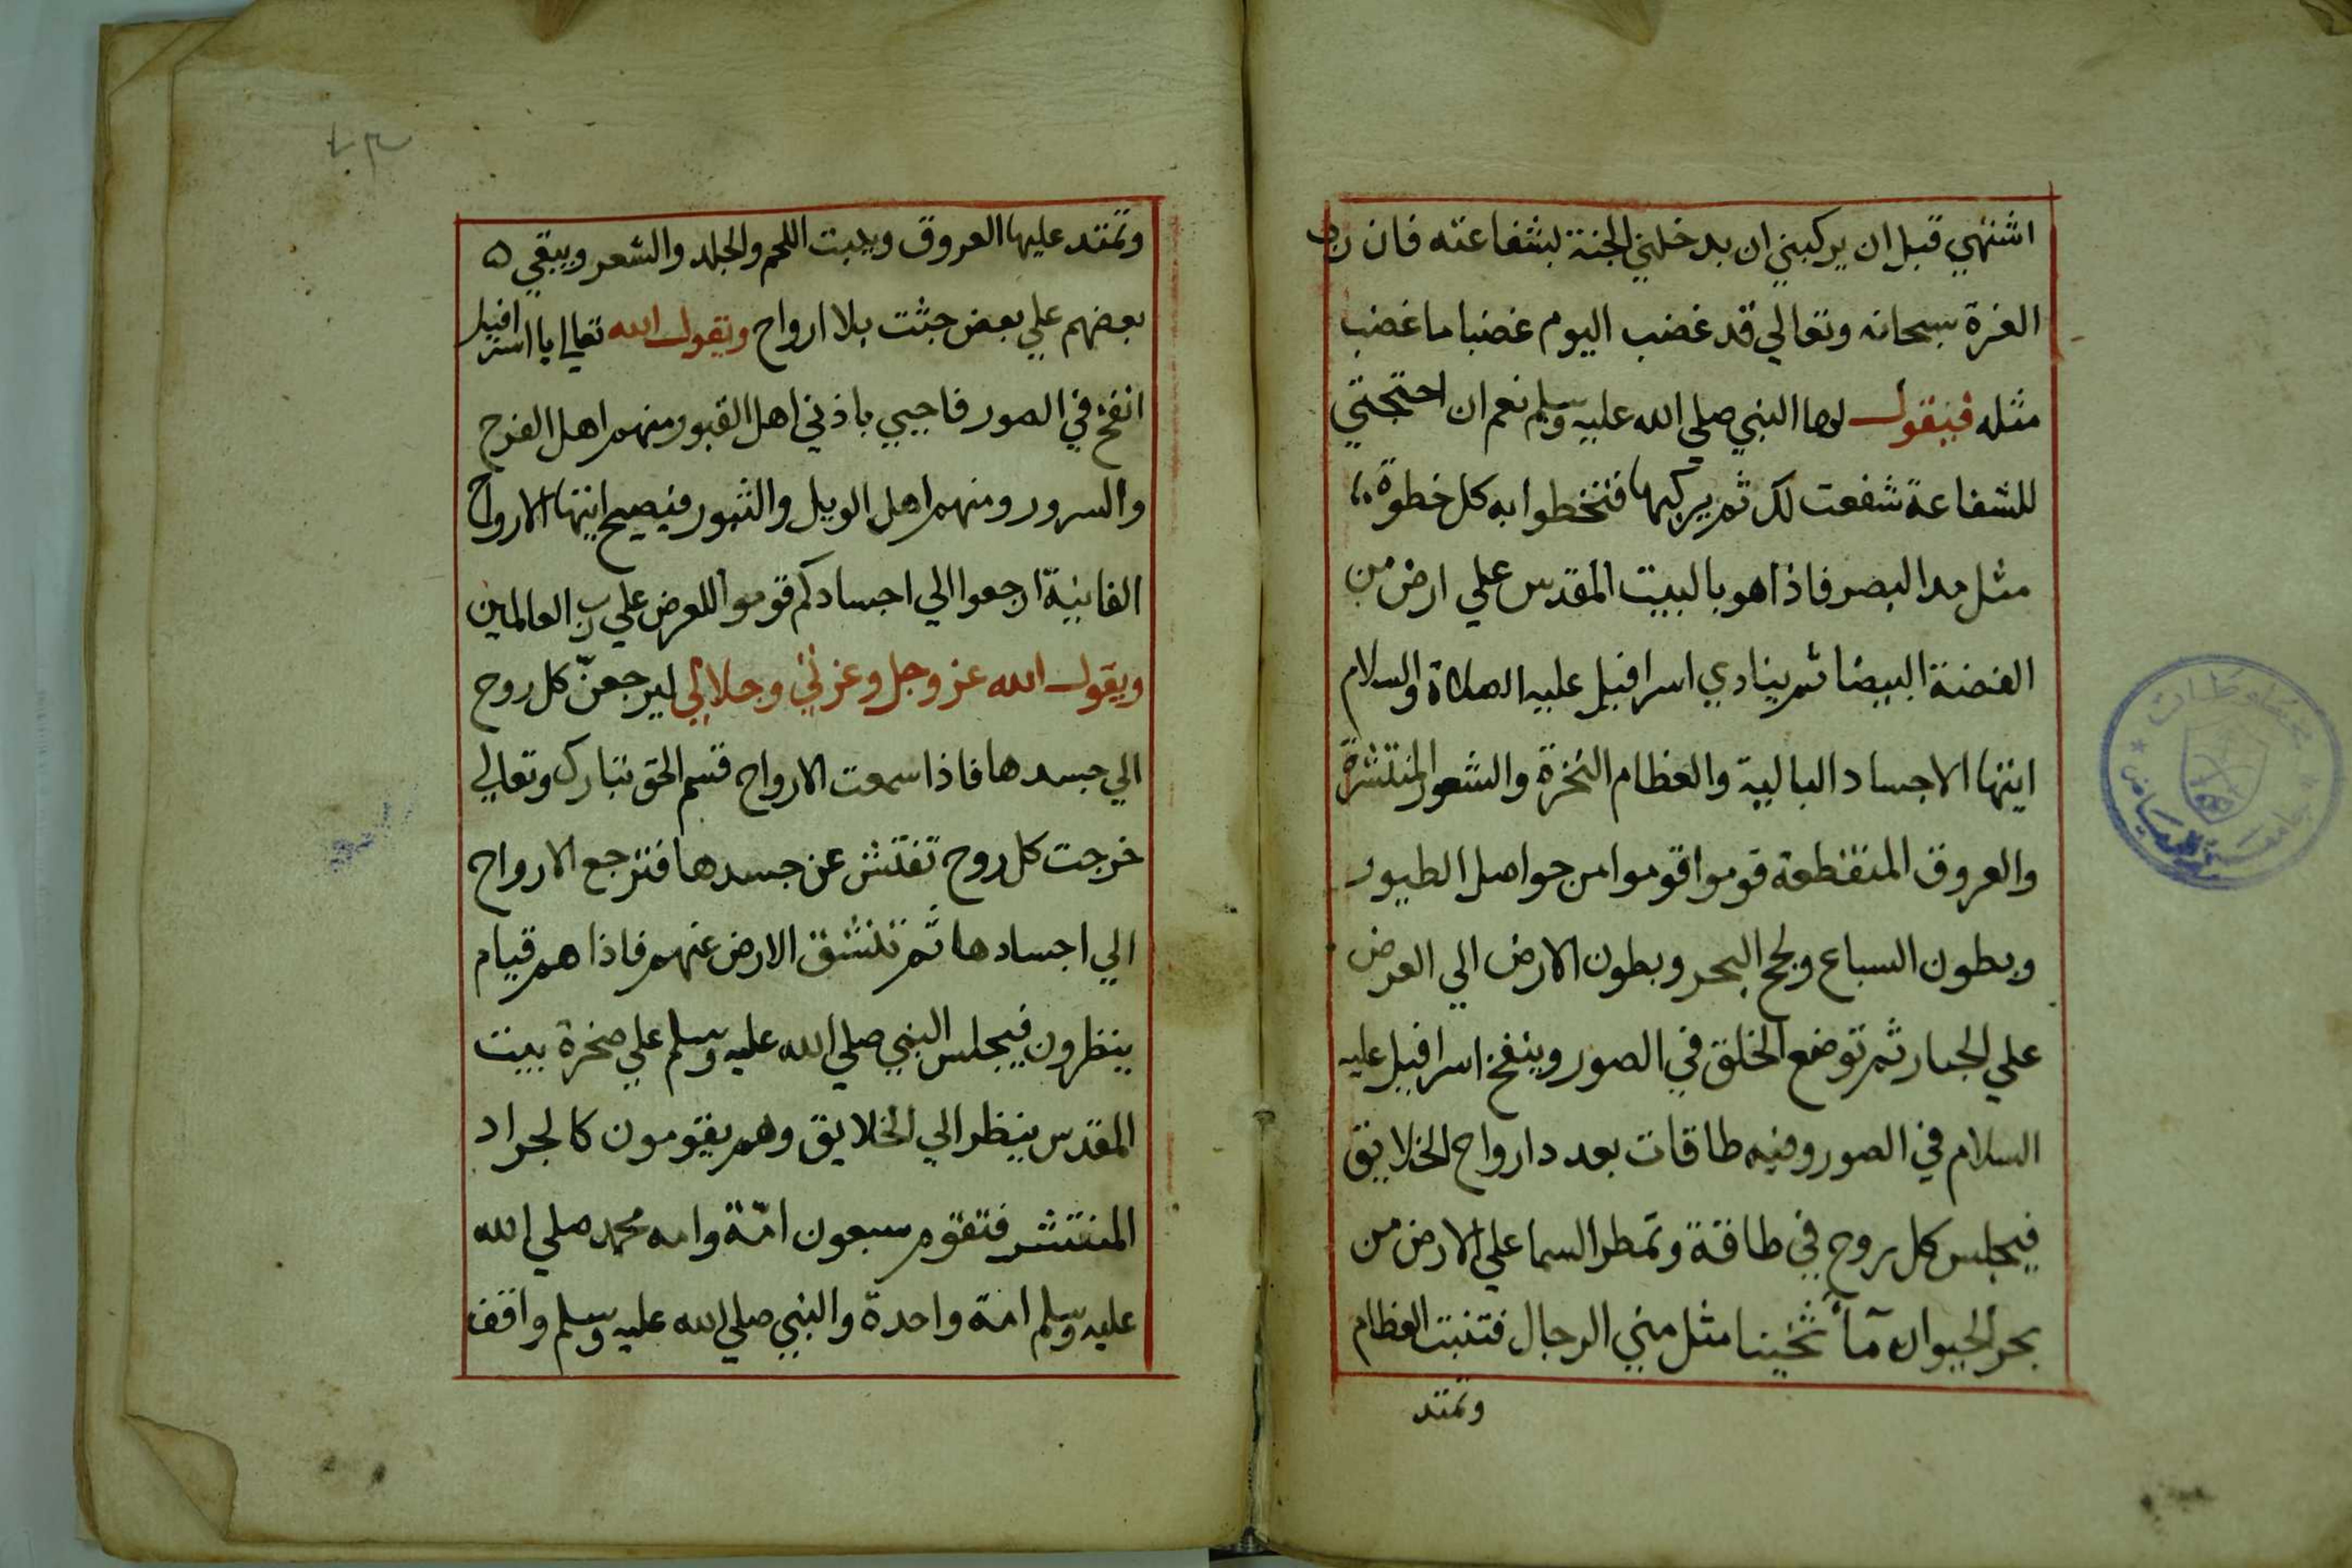 اشتهي قبل ان يركبني ان يدخلني الجنة بشفاعته فان رب
العزة سبحانه وتعالي قد غضب اليوم غضبا ما غضب
مثله فيقول لها النبي صلي الله عليه وسلم نعم ان احتجتي
للشفاعة شفعت لك ثم يركبها فتخطوا به كل خطوة
مثل مد البصر فاذا هو بالبيت المقدس علي ارض من
الفضة البيضا ثم ينادي اسرافيل عليه الصلاة والسلام
ايتها الاجساد البالية والعظام النخرة والشعور المنتشرة
والعروق المتقطعة قوموا قوموا من حواصل الطيور
وبطون السباع ولجج البحر وبطون الارض الي العرض
علي الجبار ثم توضع الخلق في الصور وينفخ اسرافيل عليه
السلام في الصور وفيه طاقات بعدد ارواح الخلايق
فيجلس كل روح في طاقة وتمطر السما علي الارض من
بحر الحيوان مآأ ثخينا مثل مني الرجال فتنبت العظام
وتمتد
وتمتد عليها العروق وينبت اللحم والجلد والشعر ويبقي ه
بعضهم علي بعض جثت بلا ارواح ويقول الله تعالي يا اسرافيل
انفخ في الصور فاجيبي باذني اهل القبور ومنهم اهل الفرح
والسرور ومنهم اهل الويل والثبور فيصيح ايتها الارواح
الفانية ارجعوا الي اجسادكم قوموا للعرض علي رب العالمين
ويقول الله عز وجل وعزتي وجلالي ليرجعنّ كل روح
الي جسدها فاذا سمعت الارواح قسم الحق تبارك وتعالي
خرجت كل روح تفتش عن جسدها فترجع الارواح
الي اجسادها ثم تنشق الارض عنهم فاذا هم قيام
ينظرون فيجلس النبي صلي الله عليه وسلم علي صخرة بيت
المقدس ينظر الي الخلايق وهم يقومون كالجراد
المنتشر فتقوم سبعون امّة وامه محمد صلي الله
عليه وسلم امة واحدة والنبي صلي الله عليه وسلم واقف